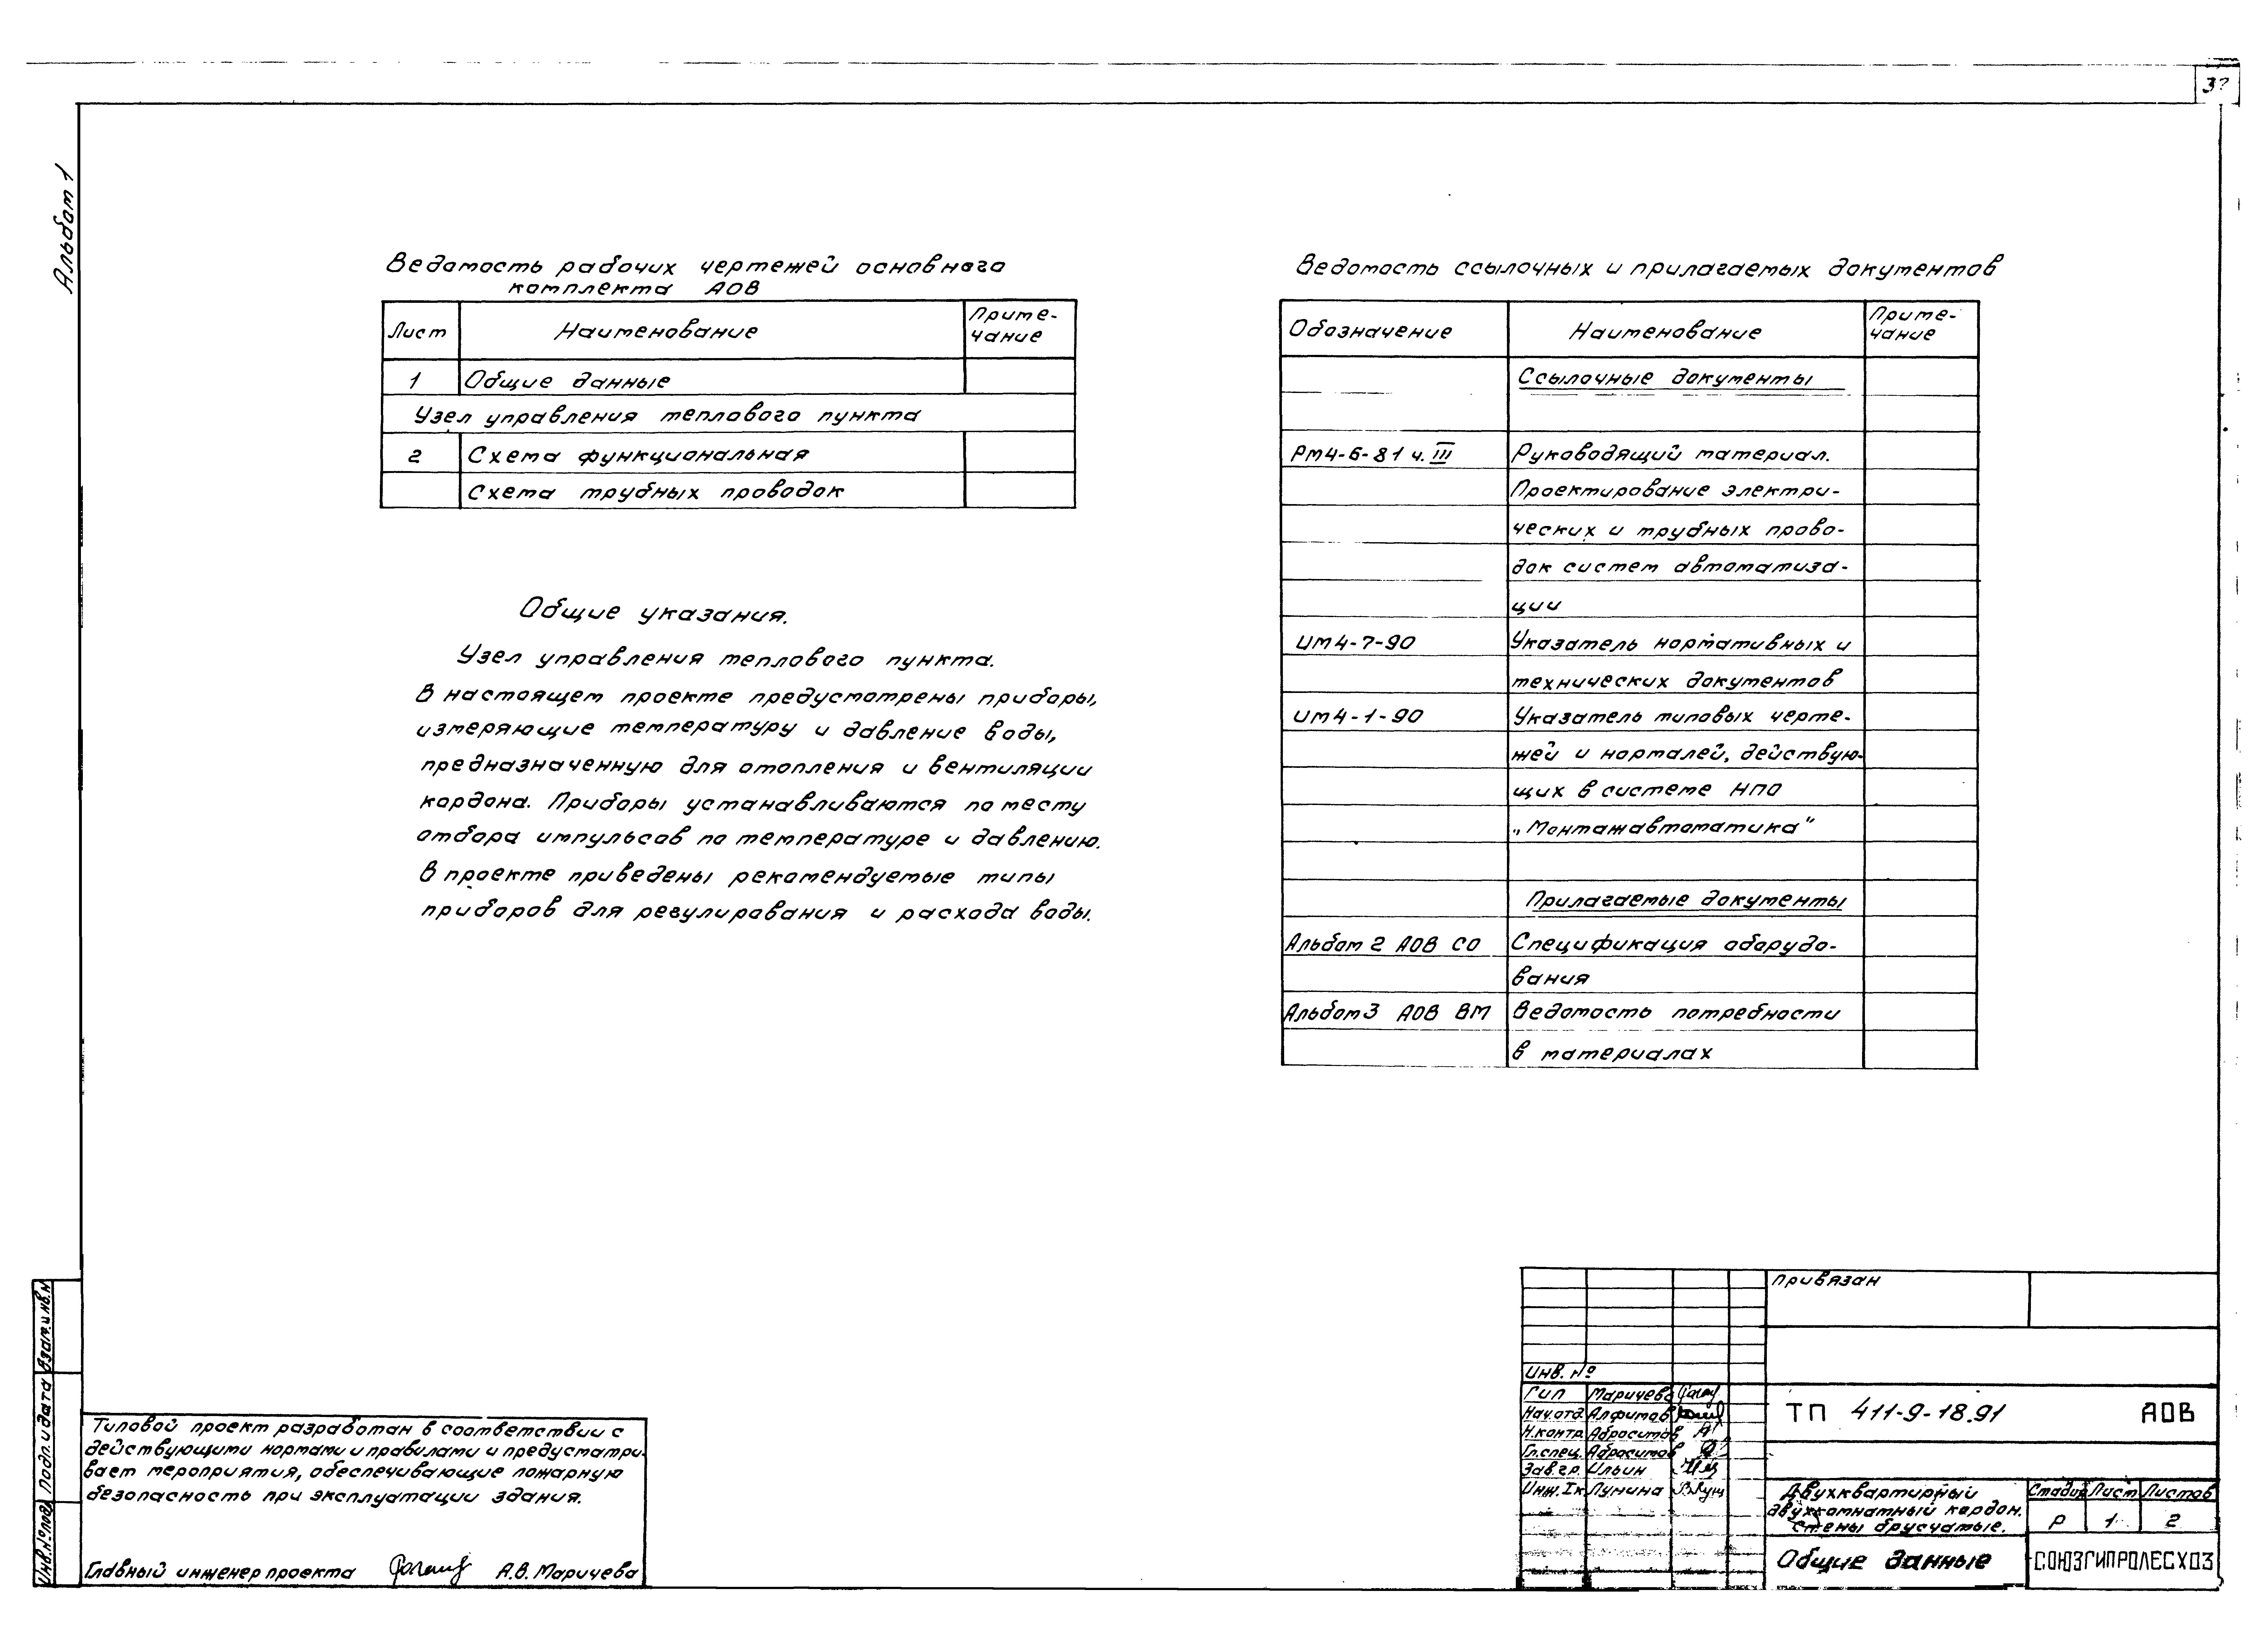 Альбом 1
Ведомость рабочих чертежей основного
комплекта АОВ
Лист Наименование Приме-
чание
1 Общие данные
Узел управления теплового пункта
2 Схема функциональная
Схема трубных проводок
Общие указания.
Узел управления теплового пункта.
В настоящем проекте предусмотрены приборы,
измеряющие температуру и давление воды,
предназначенную для отопления и вентиляции
кордона. Приборы устанавливаются по месту
отбора импульсов по температуре и давлению.
В проекте приведены рекомендуемые типы
приборов для регулирования и расхода воды.
Ведомость ссылочных и прилагаемых документов
Обозначение Наименование Приме-
чание
Ссылочные документы
РМ4-6-81 ч. III Руководящий материал.
Проектирование электри-
ческих и трубных прово-
док систем автоматиза-
ции
ИМ4-7-90 Указатель нормативных и
технических документов
ИМ4-1-90 Указатель типовых черте-
жей и нормалей, действую-
щих в системе НПО
„Монтажавтоматика"
Прилагаемые документы
Альбом 2 АОВ СО Спецификация оборудо-
вания
Альбом 3 АОВ ВМ Ведомость потребности
в материалах
Взам.инв.н
Подп. и дата
Инв.№ подл
Типовой проект разработан в соответствии с
действующими нормами и правилами и предусматри-
вает мероприятия, обеспечивающие пожарную
безопасность при эксплуатации здания.
Главный инженер проекта А.В. Маричева
Привязан
Инв. №
ГИП Маричева
Нач.отд. Алфимов
Н.контр. Абросимов
Гл.спец. Абросимов
Зав.гр. Ильин
Инж. Iк Лунина
ТП 411-9-18.91 АОВ
Двухквартирный
двухкомнатный кордон.
Стены брусчатые.
Стадия Лист Листов
Р 1 2
Общие данные
СОЮЗГИПРОЛЕСХОЗ